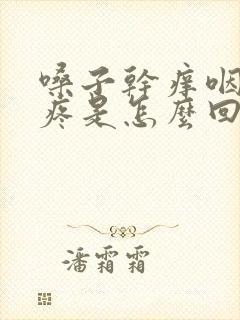 嗓子幹癢咽
疼是怎麼回
潘霜霜